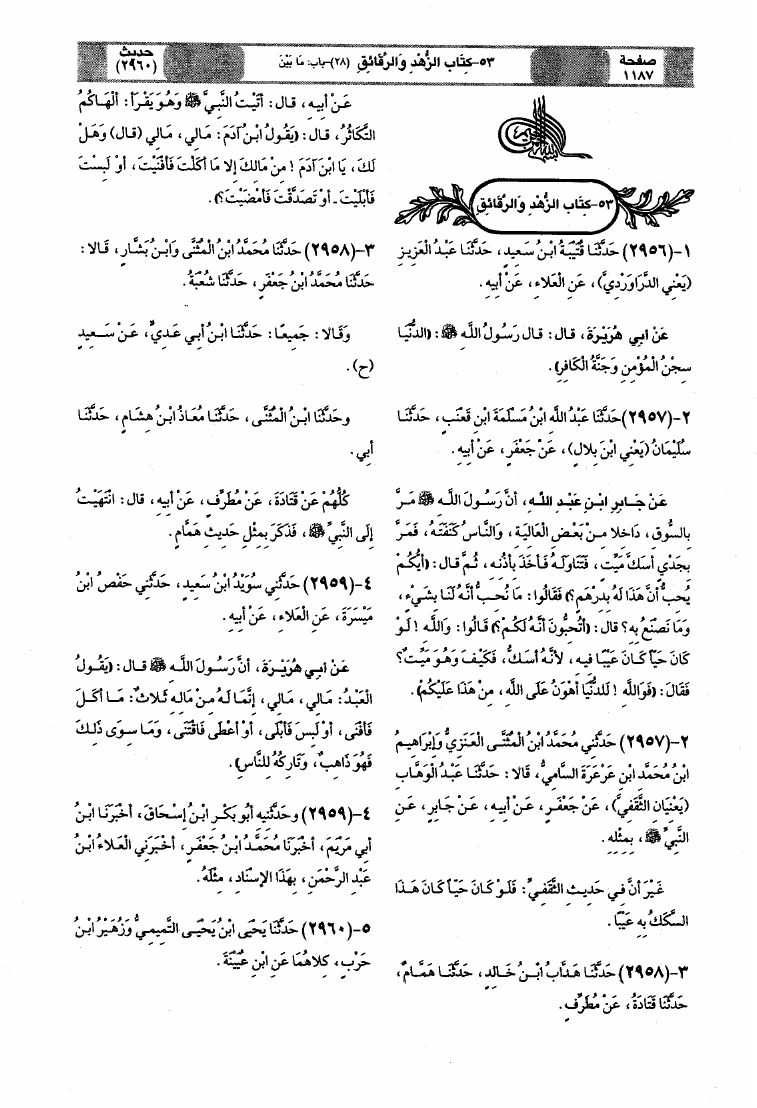 صفحة
١١٨٧
٥٣-كتاب الزُّهْد وَالرَّقَائِقِ (٢٨)-باب: مَا بَيْنَ
حديث
(٢٩٦٠)
٥٣-كتاب الزُّهْد وَالرَّقَائِقِ
١-(٢٩٥٦) حَدَّثَنَا قُتَيْبَةُ ابْنُ سَعِيدٍ، حَدَّثَنَا عَبْدُ الْعَزِيزِ
(يَعْنِي الدَّرَاوَرْدِيَّ)، عَنِ الْعَلاءِ، عَنْ أَبِيهِ.
عَنْ أَبِي هُرَيْرَةَ، قال: قال رَسُولُ اللَّهِ ﷺ: (الدُّنْيَا
سِجْنُ الْمُؤْمِنِ وَجَنَّةُ الْكَافِرِ).
٢-(٢٩٥٧) حَدَّثَنَا عَبْدُ اللَّه ابْنُ مَسْلَمَةَ ابْنِ قَعْنَبٍ، حَدَّثَنَا
سُلَيْمَانُ (يَعْنِي ابْنَ بِلالٍ)، عَنْ جَعْفَرٍ، عَنْ أَبِيهِ.
عَنْ جَابِرِ ابْنِ عَبْدِ اللَّه، أَنَّ رَسُولَ اللَّه ﷺ مَرَّ
بِالسُّوقِ، دَاخِلا مِنْ بَعْضِ الْعَالِيَةِ، وَالنَّاسُ كَنَفَتَهُ، فَمَرَّ
بِجَدْيٍ أَسَكَّ مَيِّتٍ، فَتَنَاوَلَهُ فَأَخَذَ بِأُذُنِهِ، ثُمَّ قال: (أَيُّكُمْ
يُحِبُّ أَنَّ هَذَا لَهُ بِدِرْهَمٍ؟) فَقَالُوا: مَا نُحِبُّ أَنَّهُ لَنَا بِشَيْءٍ،
وَمَا نَصْنَعُ بِهِ؟ قال: (أَتُحِبُّونَ أَنَّهُ لَكُمْ؟) قَالُوا: وَاللَّه ! لَوْ
كَانَ حَيّاً كَانَ عَيْبًا فِيهِ، لأَنَّهُ أَسَكُّ، فَكَيْفَ وَهُوَ مَيِّتٌ؟
فَقَالَ: (فَوَاللَّه ! لَلدُّنْيَا أَهْوَنُ عَلَى اللَّه، مِنْ هَذَا عَلَيْكُمْ).
٢-(٢٩٥٧) حَدَّثَنِي مُحَمَّدُ ابْنُ الْمُثَنَّى الْعَنَزِيُّ وَإِبْرَاهِيمُ
ابْنُ مُحَمَّدِ ابْنِ عَرْعَرَةَ السَّامِيُّ، قَالا: حَدَّثَنَا عَبْدُ الْوَهَّاب
(يَعْنِيَان الثَّقَفِيَّ)، عَنْ جَعْفَرٍ، عَنْ أَبِيهِ، عَنْ جَابِرٍ، عَنِ
النَّبِيِّ ﷺ، بِمِثْلِهِ.
غَيْرَ أَنَّ فِي حَدِيثِ الثَّقَفِيِّ: فَلَوْ كَانَ حَيّاً كَانَ هَذَا
السَّكَكُ بِهِ عَيْبًا.
٣-(٢٩٥٨) حَدَّثَنَا هَدَّابُ ابْنُ خَالِدٍ، حَدَّثَنَا هَمَّامٌ،
حَدَّثَنَا قَتَادَةُ، عَنْ مُطَرِّفٍ.
عَنْ أَبِيهِ، قال: أَتَيْتُ النَّبِيَّ ﷺ وَهُوَ يَقْرَأُ: أَلْهَاكُمُ
التَّكَاثُرُ، قال: (يَقُولُ ابْنُ آدَمَ: مَالِي، مَالِي (قال) وَهَلْ
لَكَ، يَا ابْنَ آدَمَ ! مِنْ مَالِكَ إِلا مَا أَكَلْتَ فَأَفْنَيْتَ، أَوْ لَبِسْتَ
فَأَبْلَيْتَ. أَوْ تَصَدَّقْتَ فَأَمْضَيْتَ؟).
٣-(٢٩٥٨) حَدَّثَنَا مُحَمَّدُ ابْنُ الْمُثَنَّى وَابْنُ بَشَّارٍ، قَالا:
حَدَّثَنَا مُحَمَّدُ ابْنُ جَعْفَرٍ، حَدَّثَنَا شُعْبَةُ.
وَقَالا: جَمِيعًا: حَدَّثَنَا ابْنُ أَبِي عَدِيٍّ، عَنْ سَعِيدٍ
(ح).
وحَدَّثَنَا ابْنُ الْمُثَنَّى، حَدَّثَنَا مُعَاذُ ابْنُ هِشَامٍ، حَدَّثَنَا
أَبِي.
كُلُّهُمْ عَنْ قَتَادَةَ، عَنْ مُطَرِّفٍ، عَنْ أَبِيهِ، قال: انْتَهَيْتُ
إِلَى النَّبِيِّ ﷺ، فَذَكَرَ بِمِثْلِ حَدِيثِ هَمَّامٍ.
٤-(٢٩٥٩) حَدَّثَنِي سُوَيْدُ ابْنُ سَعِيدٍ، حَدَّثَنِي حَفْصُ ابْنُ
مَيْسَرَةَ، عَنِ الْعَلاءِ، عَنْ أَبِيهِ.
عَنْ أَبِي هُرَيْرَةَ، أَنَّ رَسُولَ اللَّه ﷺ قال: (يَقُولُ
الْعَبْدُ: مَالِي، مَالِي، إِنَّمَا لَهُ مِنْ مَالِهِ ثَلاثٌ: مَا أَكَلَ
فَأَفْنَى، أَوْ لَبِسَ فَأَبْلَى، أَوْ أَعْطَى فَاقْتَنَى، وَمَا سِوَى ذَلِكَ
فَهُوَ ذَاهِبٌ، وَتَارِكُهُ لِلنَّاسِ).
٤-(٢٩٥٩) وحَدَّثَنِيهِ أَبُو بَكْرِ ابْنُ إِسْحَاقَ، أَخْبَرَنَا ابْنُ
أَبِي مَرْيَمَ، أَخْبَرَنَا مُحَمَّدُ ابْنُ جَعْفَرٍ، أَخْبَرَنِي الْعَلاءُ ابْنُ
عَبْدِ الرَّحْمَنِ، بِهَذَا الإِسْنَادِ، مِثْلَهُ.
٥-(٢٩٦٠) حَدَّثَنَا يَحْيَى ابْنُ يَحْيَى التَّمِيمِيُّ وَزُهَيْرُ ابْنُ
حَرْبٍ، كِلاهُمَا عَنِ ابْنِ عُيَيْنَةَ.